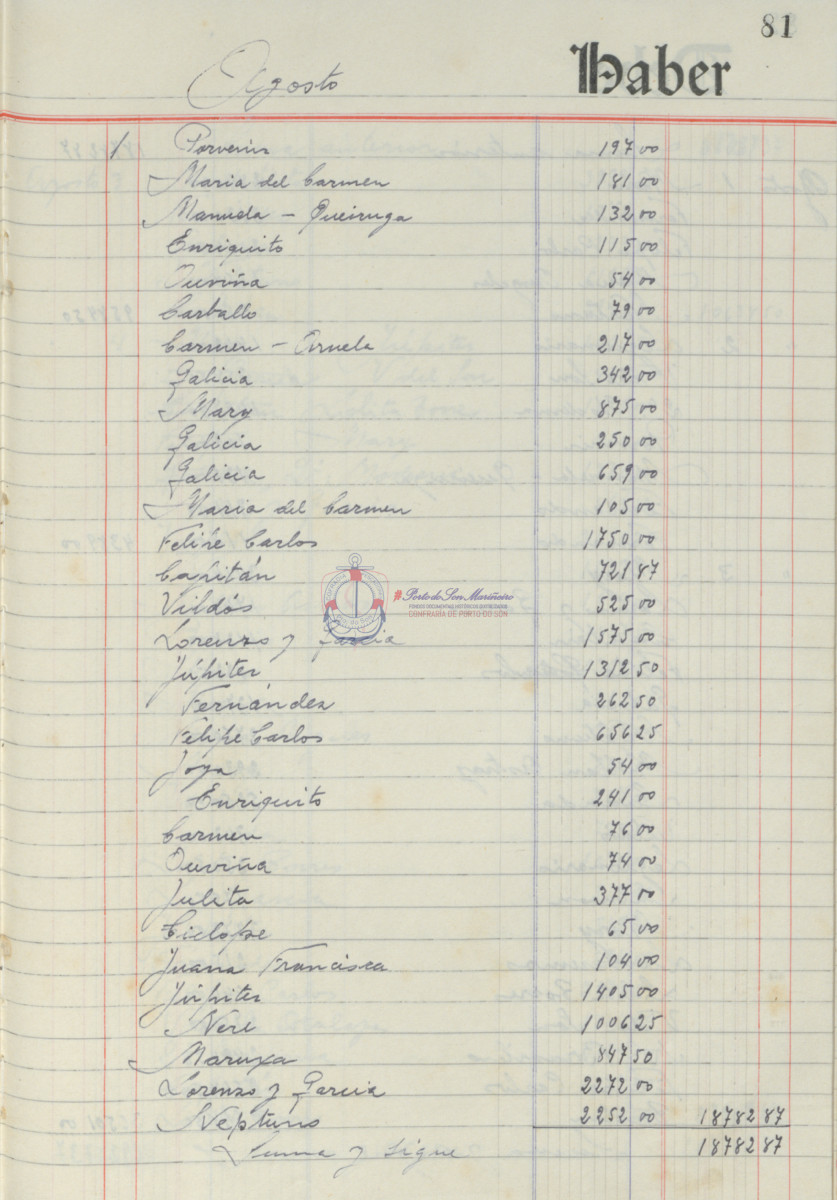 81
Agosto Haber
1 Porvenir 197 00
Maria del Carmen 181 00
Manuela - Queiruga 132 00
Enriquito 115 00
Ouviña 54 00
Carballo 79 00
Carmen - Oruela 217 00
Galicia 342 00
Mary 875 00
Galicia 250 00
Galicia 659 00
Maria del Carmen 105 00
Felipe Carlos 1750 00
Capitán 721 87
Vildós 525 00
#PortodoSon Mariñeiro
FONDOS DOCUMENTAIS HISTÓRICOS DIXITALIZADOS
CONFRARÍA DE PORTO DO SON
Lorenzo y Garcia 1575 00
Júpiter 1312 50
Fernández 262 50
Felipe Carlos 656 25
Joya 54 00
Enriquito 241 00
Carmen 76 00
Ouviña 74 00
Julita 377 00
Ciclope 65 00
Juana Francisca 104 00
Júpiter 1405 00
Nere 1006 25
Maruxa 847 50
Lorenzo y Garcia 2272 00
Neptuno 2252 00 18782 87
Suma y sigue 18782 87